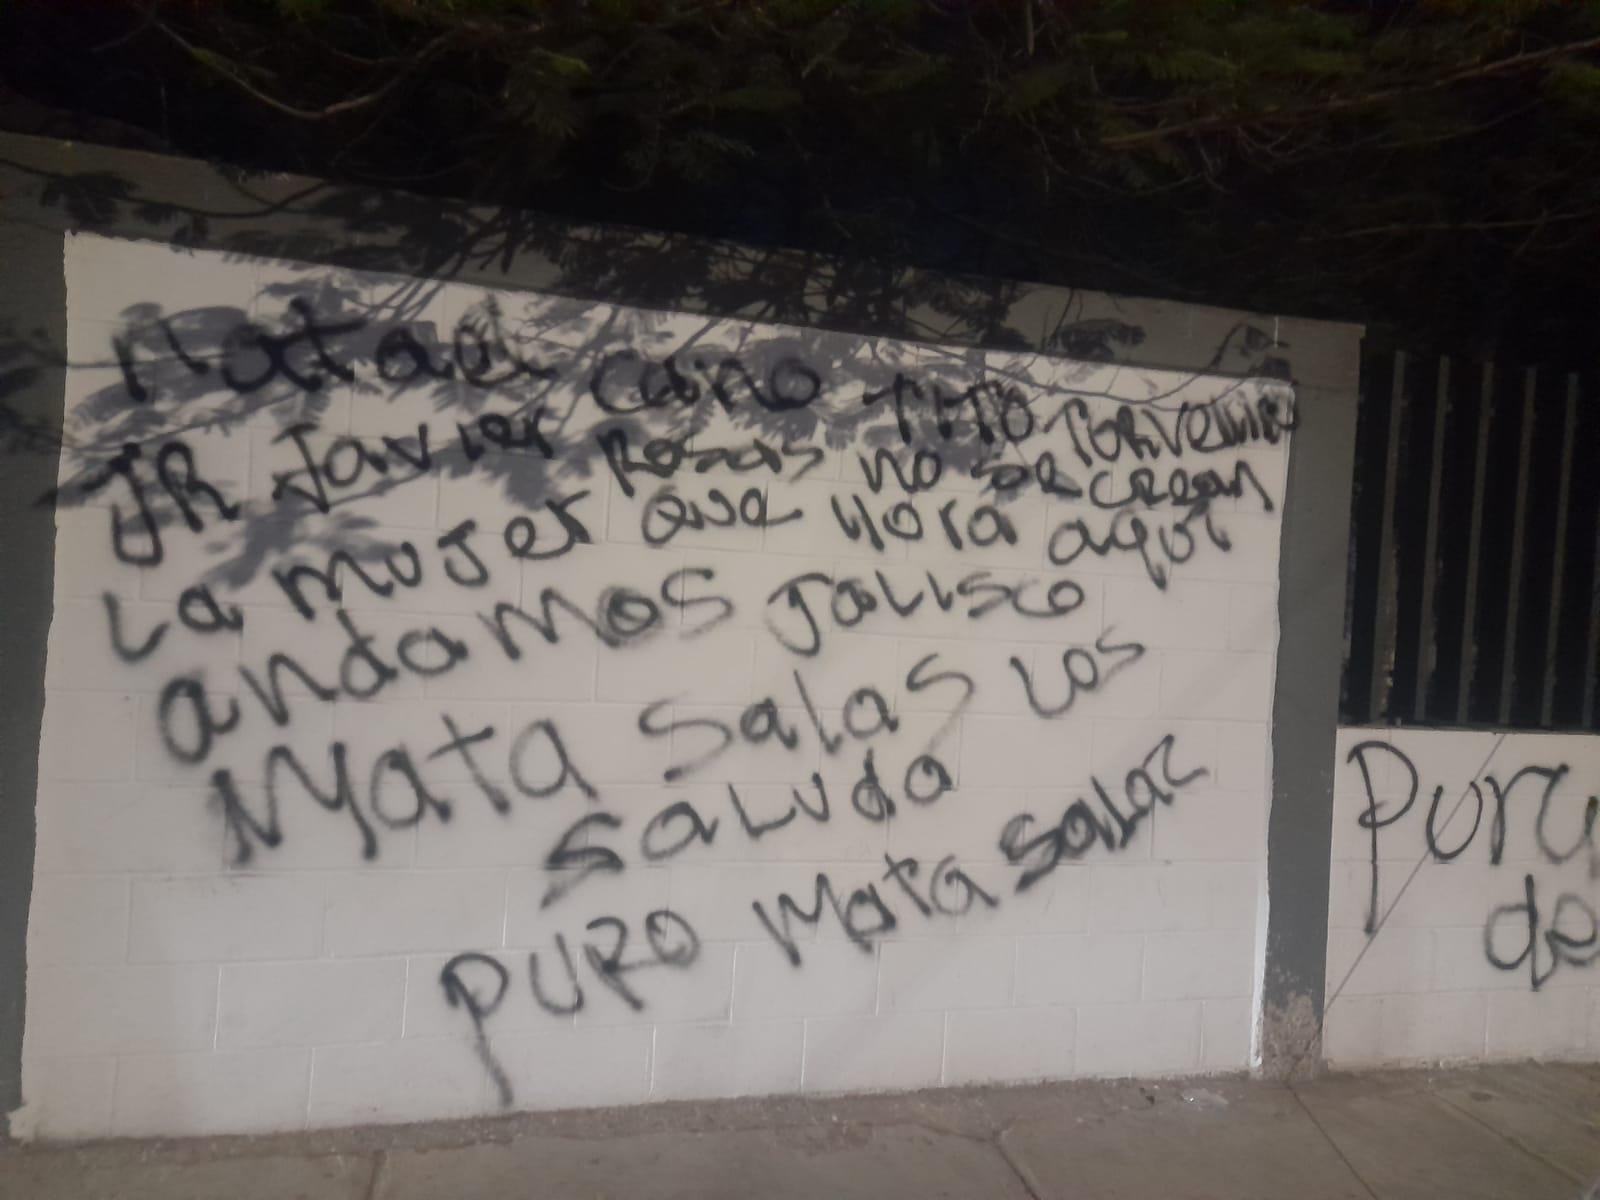 Natael cano TITO TORVellino
JR Javier Rosas no se crean
La mujer que llora aqui
andamos Jalisco
Mata salas los
saluda
PURO Mata salaz
Pura
de